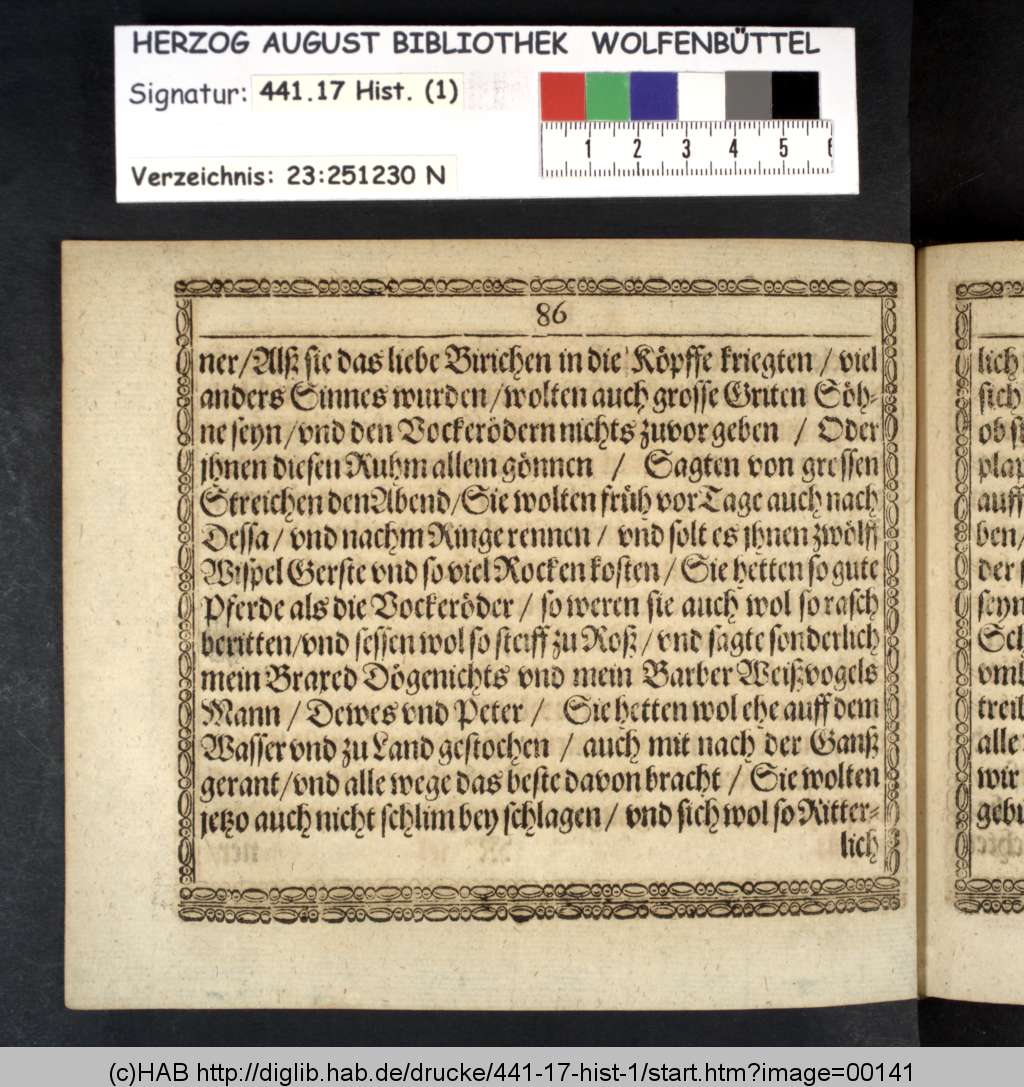 HERZOG AUGUST BIBLIOTHEK WOLFENBÜTTEL
Signatur: 441.17 Hist. (1)
1 2 3 4 5 6
Verzeichnis: 23:251230 N
86
ner/Alß sie das liebe Birichen in die Köpffe kriegten / viel
anders Sinnes wurden/wolten auch grosse Griten Söh-
ne seyn/vnd den Vockerödern nichts zuvor geben / Oder
jhnen diesen Ruhm allein gönnen / Sagten von grossen
Streichen den Abend/Sie wolten früh vor Tage auch nach
Dessa/ vnd nachm Ringe rennen / vnd solt es jhnen zwölff
Wispel Gerste vnd so viel Rocken kosten / Sie hetten so gute
Pferde als die Vockeröder / so weren sie auch wol so rasch
beritten/vnd sessen wol so steiff zu Roß / vnd sagte sonderlich
mein Braxed Dögenichts vnd mein Barber Weißvogels
Mann / Dewes vnd Peter / Sie hetten wol ehe auff dem
Wasser vnd zu Land gestochen / auch mit nach der Ganß
gerant/vnd alle wege das beste davon bracht / Sie wolten
jetzo auch nicht schlim bey schlagen / vnd sich wol so Ritter-
lich
lich
sich
ob
plap
auff
ben/
der
seyn
Sch
vmb
treib
alle
wir
gebu
(c)HAB http://diglib.hab.de/drucke/441-17-hist-1/start.htm?image=00141